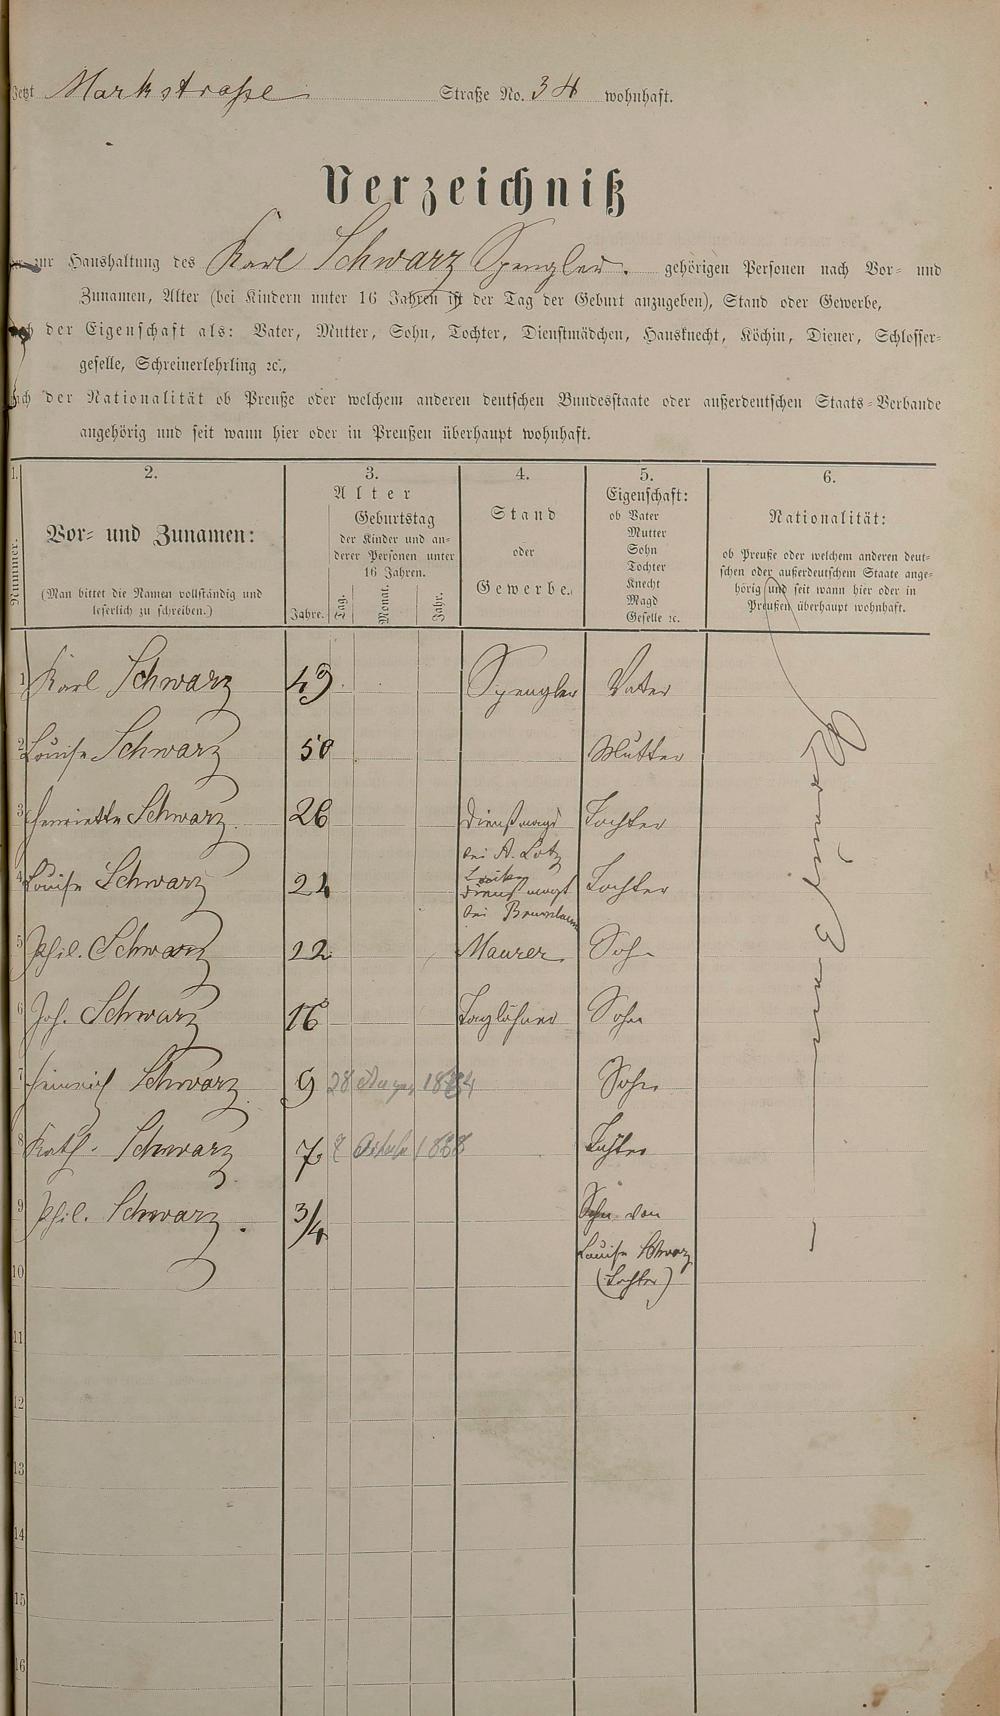 Jetzt Markstraße Straße No. 34 wohnhaft.
Verzeichniß
zur Haushaltung des Karl Schwarz Spengler. gehörigen Personen nach Vor- und
Zunamen, Alter (bei Kindern unter 16 Jahren ist der Tag der Geburt anzugeben), Stand oder Gewerbe,
nach der Eigenschaft als: Vater, Mutter, Sohn, Tochter, Dienstmädchen, Hausknecht, Köchin, Diener, Schlosser-
geselle, Schreinerlehrling ꝛc.,
nach der Nationalität ob Preuße oder welchem anderen deutschen Bundesstaate oder außerdeutschen Staats-Verbande
angehörig und seit wann hier oder in Preußen überhaupt wohnhaft.
1. 2. 3. 4. 5. 6.
Nummer.
Vor- und Zunamen:
(Man bittet die Namen vollständig und
leserlich zu schreiben.)
Alter
Geburtstag
der Kinder und an-
derer Personen unter
16 Jahren.
Jahre. Tag. Monat. Jahr.
Stand
oder
Gewerbe.
Eigenschaft:
ob Vater
Mutter
Sohn
Tochter
Knecht
Magd
Geselle ꝛc.
Nationalität:
ob Preuße oder welchem anderen deut-
schen oder außerdeutschem Staate ange-
hörig und seit wann hier oder in
Preußen überhaupt wohnhaft.
1 Karl Schwarz 49 Spengler Vater
2 Louise Schwarz 50 Mutter
3 Henriette Schwarz 26 Dienstmagd Tochter
bei A. Lotz
4 Louise Schwarz 24 Dienstmagd Tochter
bei
5 Phil. Schwarz 22 Maurer Sohn
6 Joh. Schwarz 16 Taglöhner Sohn
7 Heinrich Schwarz 9 28 Sohn
8 Kath. Schwarz 7 1868 Tochter
9 Phil. Schwarz. 3/4 Sohn von
Louise Schwarz
(Tochter)
10
11
12
13
14
15
16